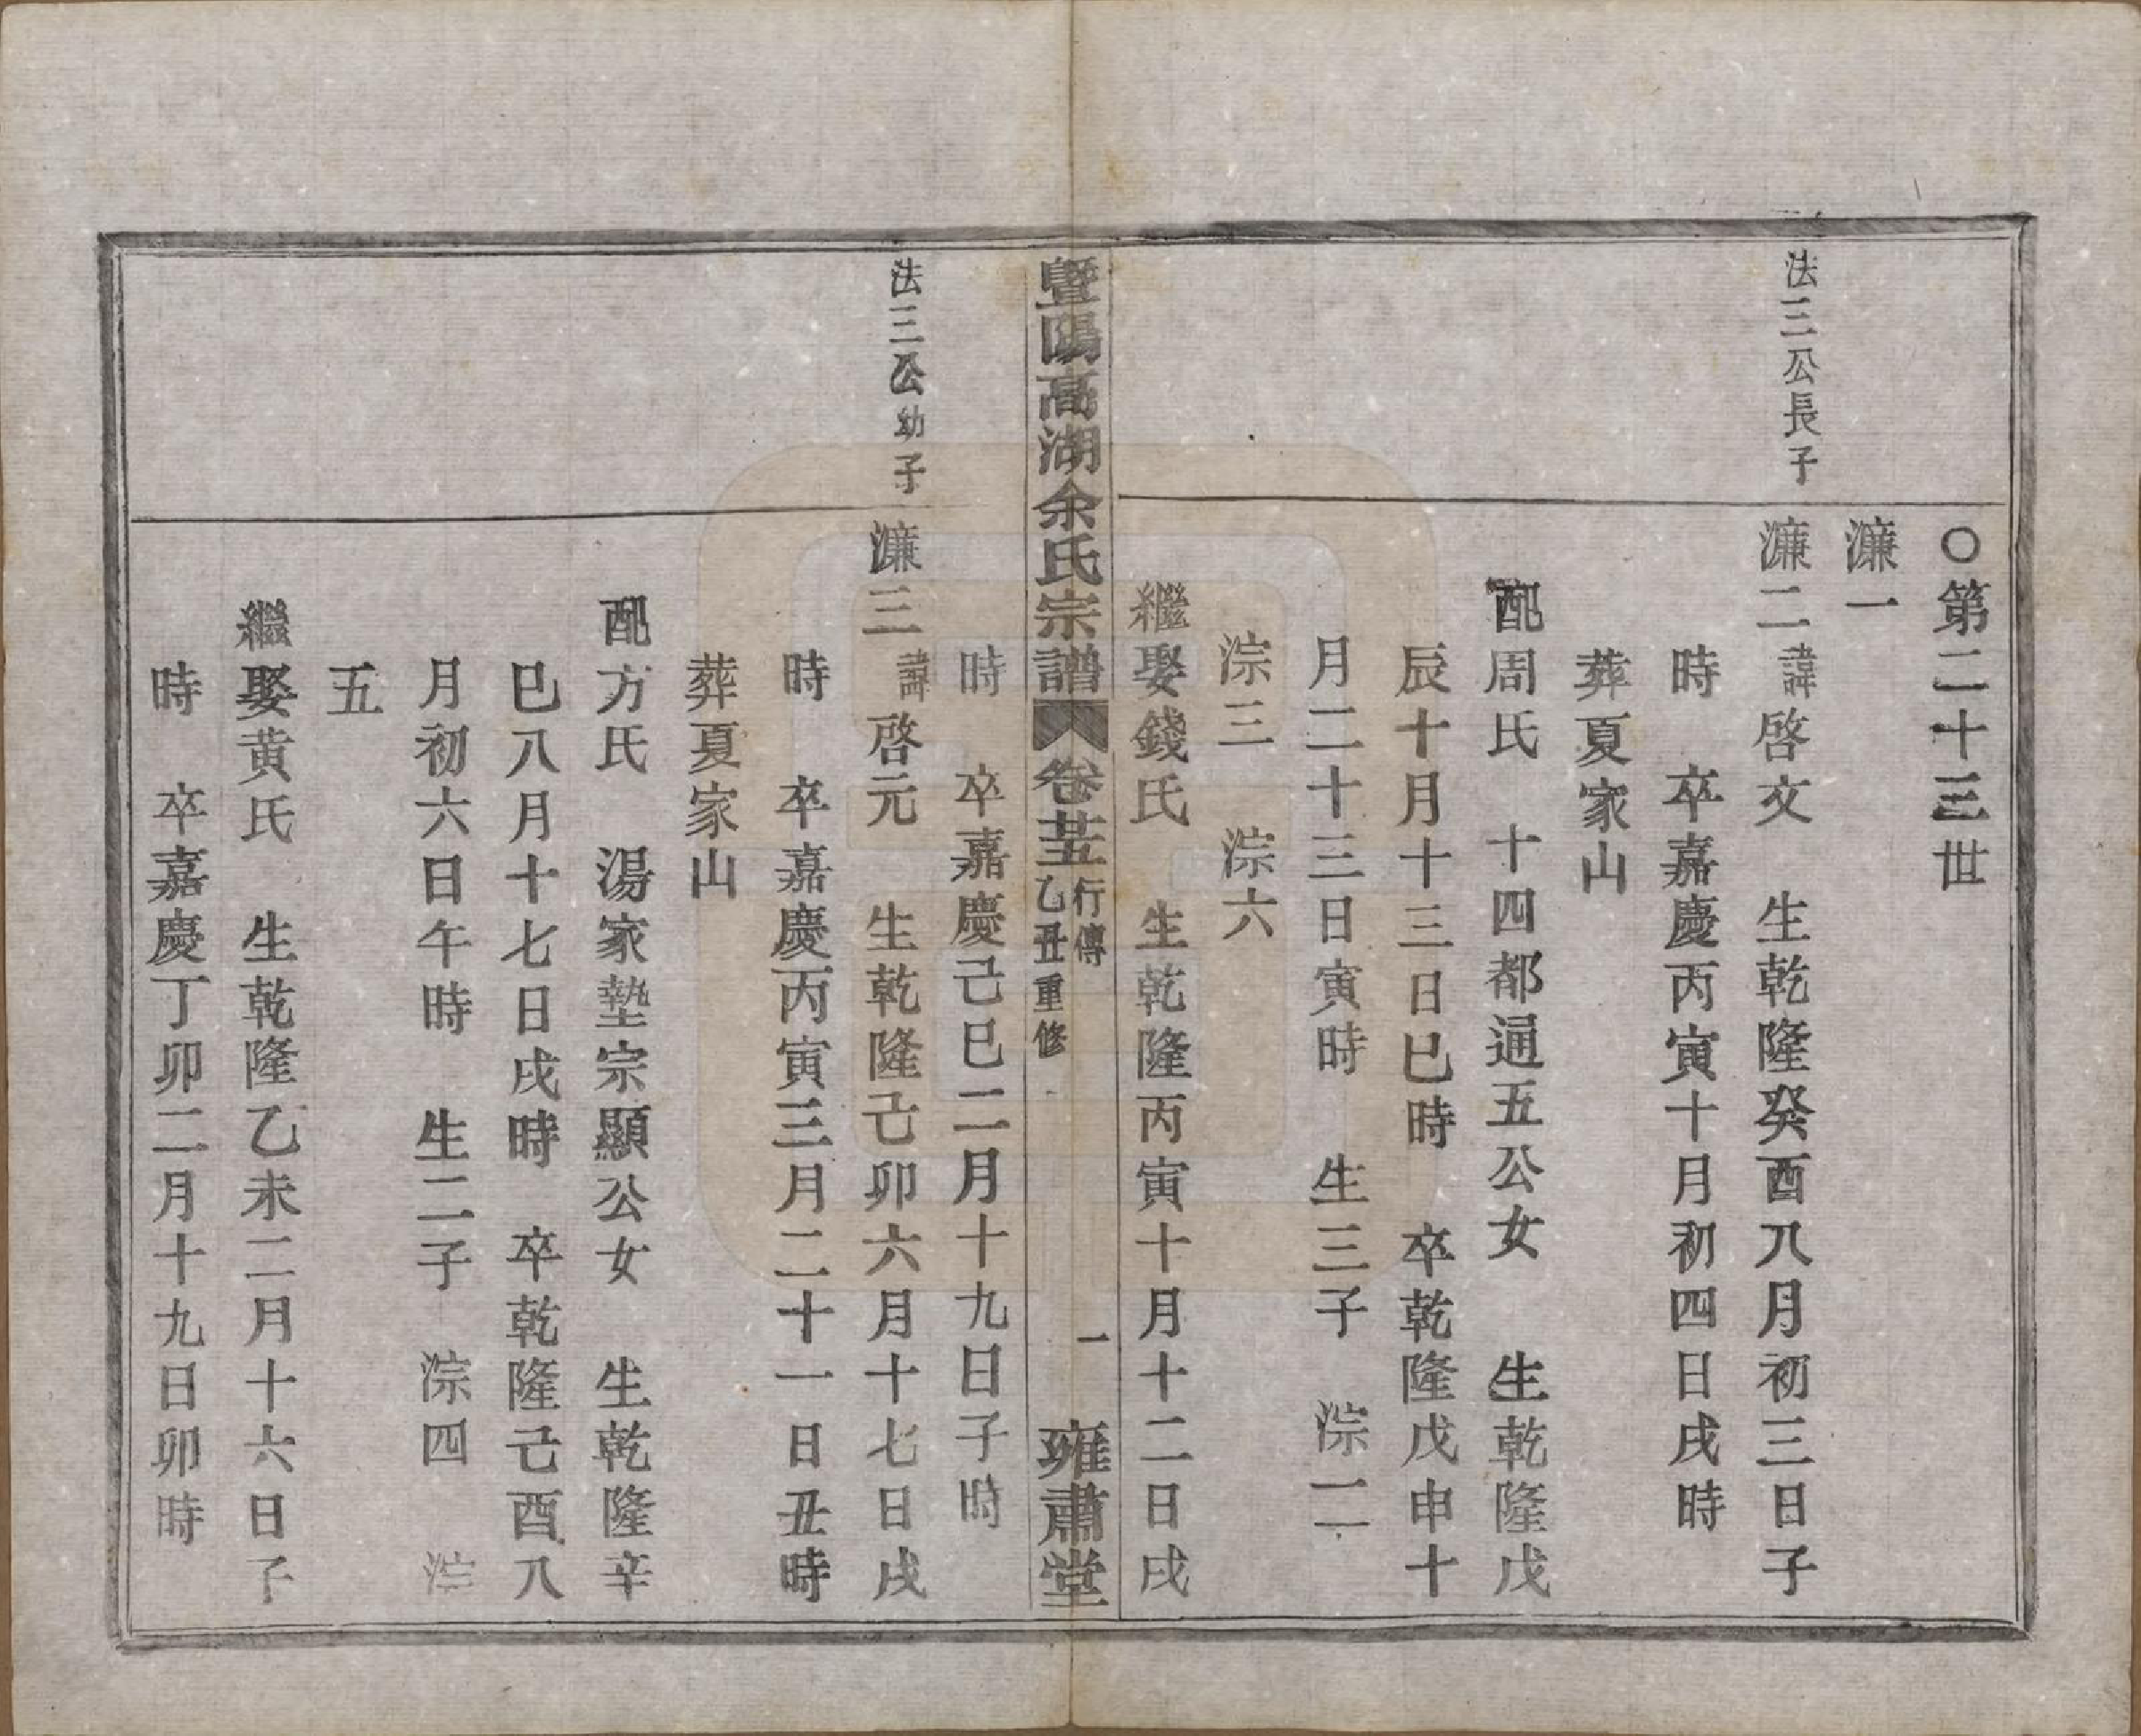 ○第二十三世
濂一
法三公長子
濂二諱啓文　生乾隆癸酉八月初三日子
時　卒嘉慶丙寅十月初四日戌時
葬夏家山
配周氏　十四都通五公女　生乾隆戊
辰十月十三日巳時　卒乾隆戊申十
月二十三日寅時　生三子　淙二
淙三　淙六
繼娶錢氏　生乾隆丙寅十月十二日戌
暨陽高湖余氏宗譜　卷廿五　行傳　乙丑重修　一　雍肅堂
時　卒嘉慶己巳二月十九日子時
法三公幼子
濂三諱啓元　生乾隆己卯六月十七日戌
時　卒嘉慶丙寅三月二十一日丑時
葬夏家山
配方氏　湯家墊宗顯公女　生乾隆辛
巳八月十七日戌時　卒乾隆己酉八
月初六日午時　生二子　淙四　淙
五
繼娶黄氏　生乾隆乙未二月十六日子
時　卒嘉慶丁卯二月十九日卯時